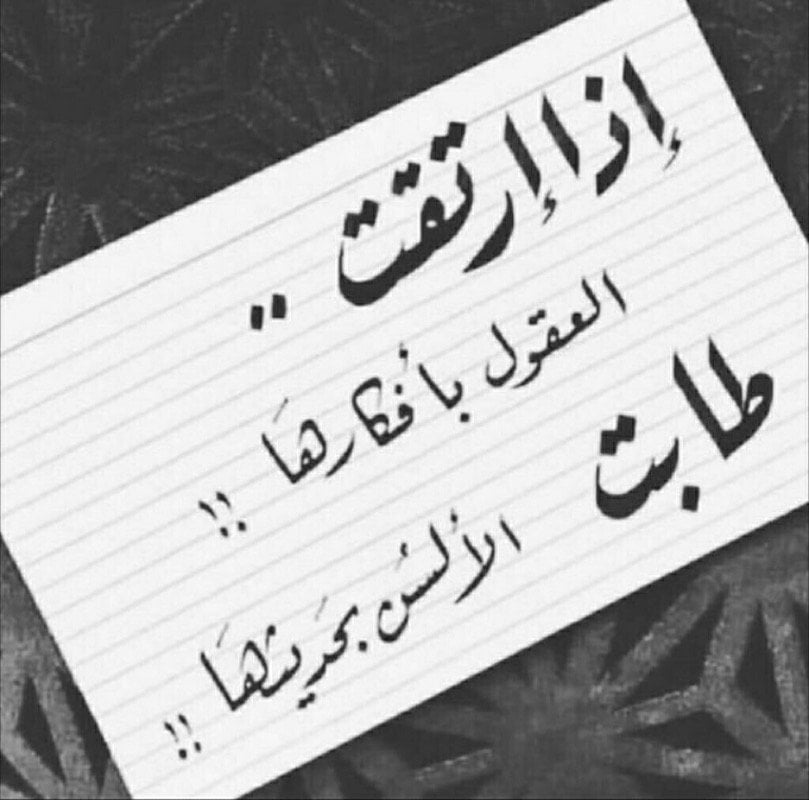 إذا إرتقت ..
العقول بأفكارهَا !!
طابت
الألسُن بحَديثهَا !!